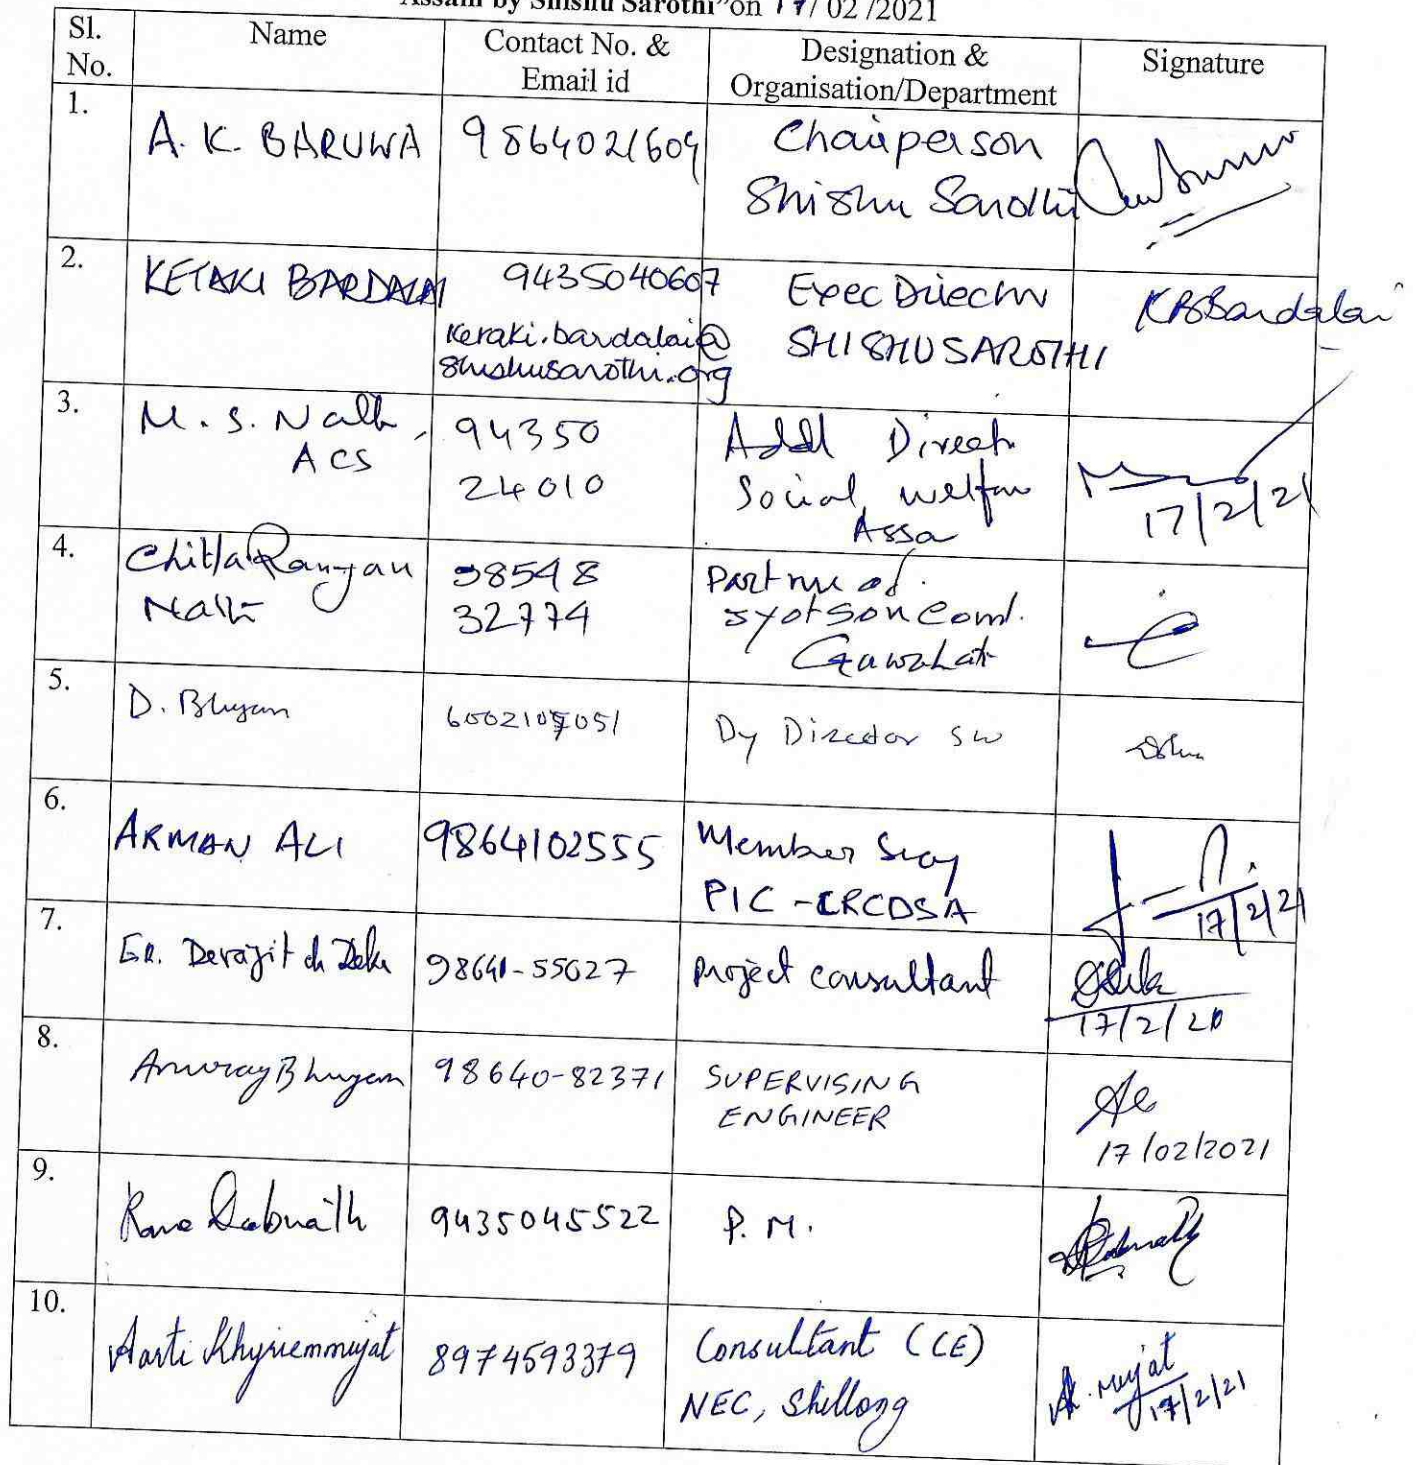 Assam by Shishu Sarothi" on 17/02/2021
Sl. No. Name Contact No. & Email id Designation & Organisation/Department Signature
1. A. K. BARUWA 9864021609 Chairperson
Shishu Sarothi
2. KETAKI BARDALAI 9435040607 Exec Director KBBardalai
keraki.bardalai@ SHISHUSAROTHI
shishusarothi.org
3. M. S. Nath, 94350 Addl Direct
ACS 24010 Social welfare
Assa 17/2/21
4. Chitta Ranjan 98548 Partner of
Nath 32774
5. D. Bhuyan 6002107051 Dy Director SW
6. ARMAN ALI 9864102555 Member Secy
PIC -CRCDSA 17/2/21
7. Er. Devajit ch Deka 98641-55027 Project consultant
17/2/20
8. Anurag Bhuyan 98640-82371 SUPERVISING
ENGINEER 17/02/2021
9. Rana Debnath 9435045522 P. M.
10. Aarti Khyriemmujat 8974593379 Consultant (CE) A. Mujat
NEC, Shillong 17/2/21